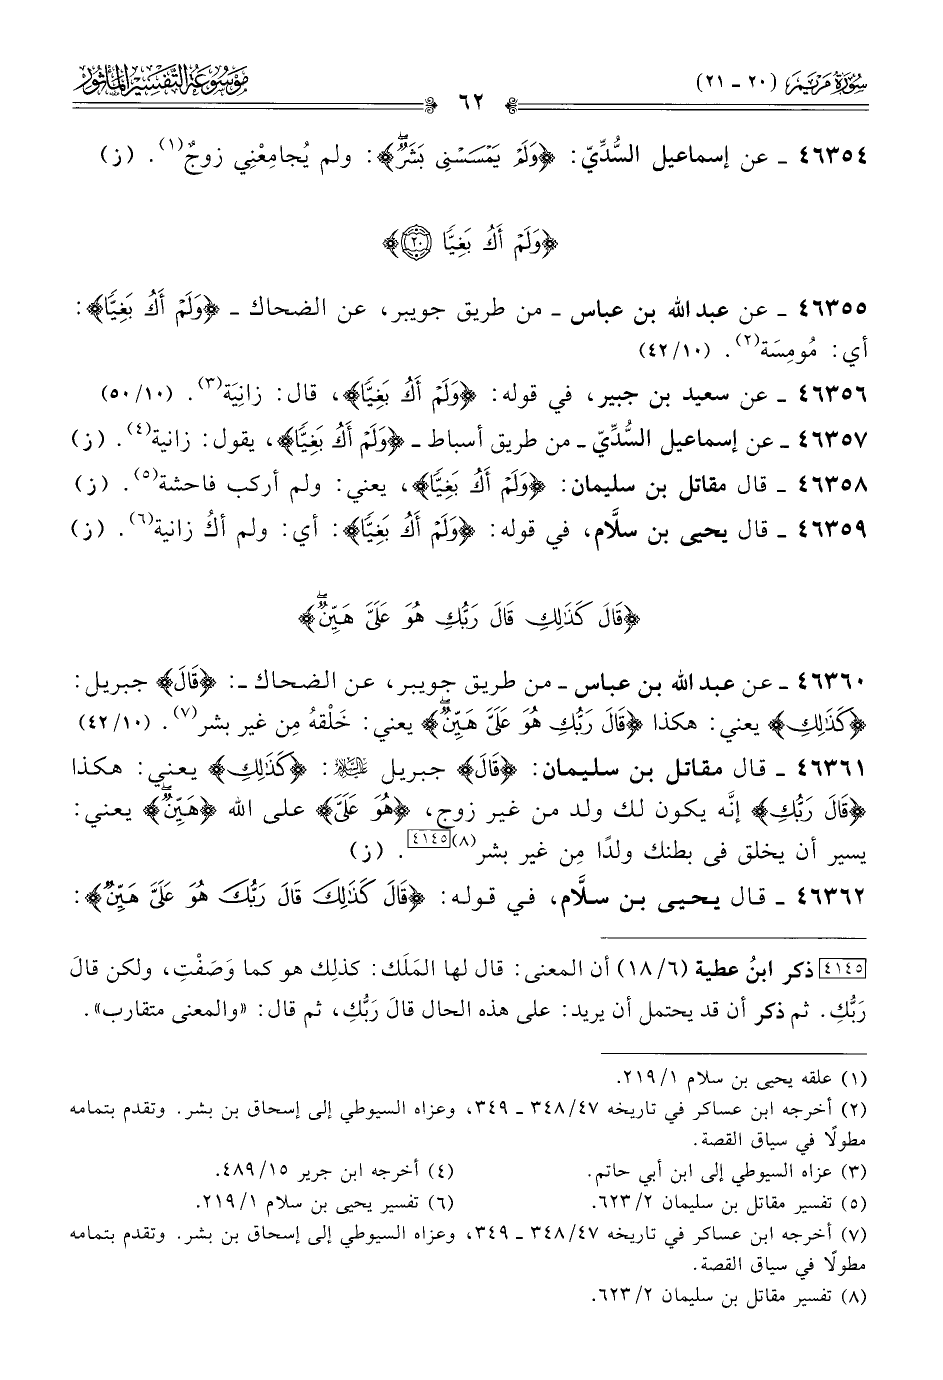 سُورَةُ مَرْيَمَ (٢٠ - ٢١)
٦٢
مَوْسُوعَةُ التَّفْسِيرِ المَأْثُورِ
٤٦٣٥٤ - عن إسماعيل السُّدِّيّ: ﴿وَلَمْ يَمْسَسْنِى بَشَرٌۖ﴾: ولم يُجامِعْنِي زوجٌ(١). (ز)
﴿وَلَمْ أَكُ بَغِيًّا ٢٠﴾
٤٦٣٥٥ - عن عبد الله بن عباس - من طريق جويبر، عن الضحاك - ﴿وَلَمْ أَكُ بَغِيًّا﴾:
أي: مُومِسَة(٢). (٤٢/١٠)
٤٦٣٥٦ - عن سعيد بن جبير، في قوله: ﴿وَلَمْ أَكُ بَغِيًّا﴾، قال: زانِيَة(٣). (٥٠/١٠)
٤٦٣٥٧ - عن إسماعيل السُّدِّيّ - من طريق أسباط - ﴿وَلَمْ أَكُ بَغِيًّا﴾، يقول: زانية(٤). (ز)
٤٦٣٥٨ - قال مقاتل بن سليمان: ﴿وَلَمْ أَكُ بَغِيًّا﴾، يعني: ولم أركب فاحشة(٥). (ز)
٤٦٣٥٩ - قال يحيى بن سلَّام، في قوله: ﴿وَلَمْ أَكُ بَغِيًّا﴾: أي: ولم أكُ زانية(٦). (ز)
﴿قَالَ كَذَٰلِكِ قَالَ رَبُّكِ هُوَ عَلَىَّ هَيِّنٌۖ﴾
٤٦٣٦٠ - عن عبد الله بن عباس - من طريق جويبر، عن الضحاك -: ﴿قَالَ﴾ جبريل:
﴿كَذَٰلِكِ﴾ يعني: هكذا ﴿قَالَ رَبُّكِ هُوَ عَلَىَّ هَيِّنٌۖ﴾ يعني: خَلْقهُ مِن غير بشر(٧). (٤٢/١٠)
٤٦٣٦١ - قال مقاتل بن سليمان: ﴿قَالَ﴾ جبريل ﵇: ﴿كَذَٰلِكِ﴾ يعني: هكذا
﴿قَالَ رَبُّكِ﴾ إنَّه يكون لك ولد من غير زوج، ﴿هُوَ عَلَىَّ﴾ على الله ﴿هَيِّنٌۖ﴾ يعني:
يسير أن يخلق في بطنك ولدًا مِن غير بشر(٨)[٤١٤٥]. (ز)
٤٦٣٦٢ - قال يحيى بن سلَّام، في قوله: ﴿قَالَ كَذَٰلِكَ قَالَ رَبُّكَ هُوَ عَلَىَّ هَيِّنٌ﴾:
[٤١٤٥] ذكر ابنُ عطية (١٨/٦) أن المعنى: قال لها المَلَك: كذلِك هو كما وَصَفْتِ، ولكن قالَ
رَبُّكِ. ثم ذكر أن قد يحتمل أن يريد: على هذه الحال قالَ رَبُّكِ، ثم قال: «والمعنى متقارب».
(١) علقه يحيى بن سلام ٢١٩/١.
(٢) أخرجه ابن عساكر في تاريخه ٣٤٨/٤٧ - ٣٤٩، وعزاه السيوطي إلى إسحاق بن بشر. وتقدم بتمامه
مطولًا في سياق القصة.
(٣) عزاه السيوطي إلى ابن أبي حاتم.
(٤) أخرجه ابن جرير ٤٨٩/١٥.
(٥) تفسير مقاتل بن سليمان ٦٢٣/٢.
(٦) تفسير يحيى بن سلام ٢١٩/١.
(٧) أخرجه ابن عساكر في تاريخه ٣٤٨/٤٧ - ٣٤٩، وعزاه السيوطي إلى إسحاق بن بشر. وتقدم بتمامه
مطولًا في سياق القصة.
(٨) تفسير مقاتل بن سليمان ٦٢٣/٢.